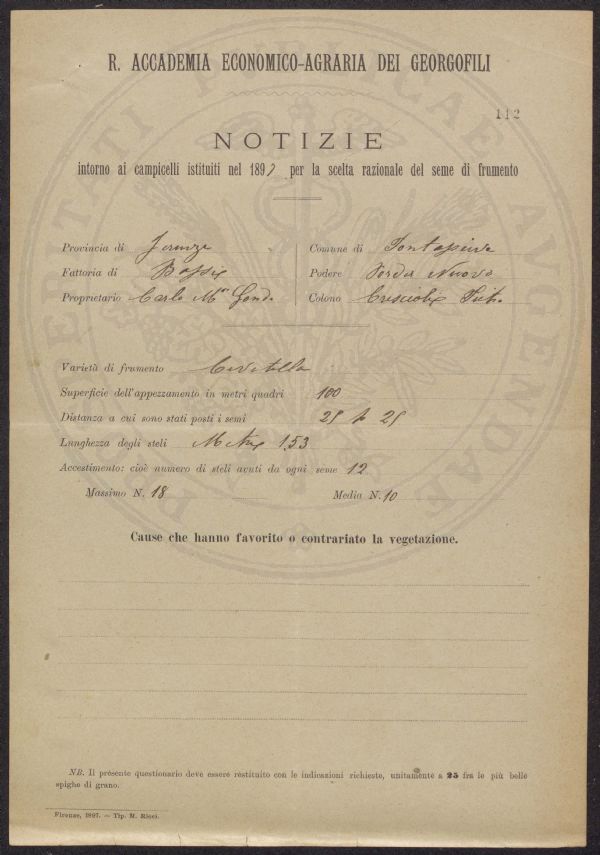 R. ACCADEMIA ECONOMICO-AGRARIA DEI GEORGOFILI
112
NOTIZIE
intorno ai campicelli istituiti nel 1897 per la scelta razionale del seme di frumento
Provincia di Firenze
Fattoria di
Proprietario Carlo
Comune di Pontassieve
Podere Nuovo
Colono
Varietà di frumento
Superficie dell'appezzamento in metri quadri 100
Distanza a cui sono stati posti i semi 25 25
Lunghezza degli steli 1,53
Accestimento: cioè numero di steli avuti da ogni seme 12
Massimo N. 18 Media N. 10
Cause che hanno favorito o contrariato la vegetazione.
NB. Il presente questionario deve essere restituito con le indicazioni richieste, unitamente a 25 fra le più belle
spighe di grano.
Firenze, 1897. — Tip. M. Ricci.